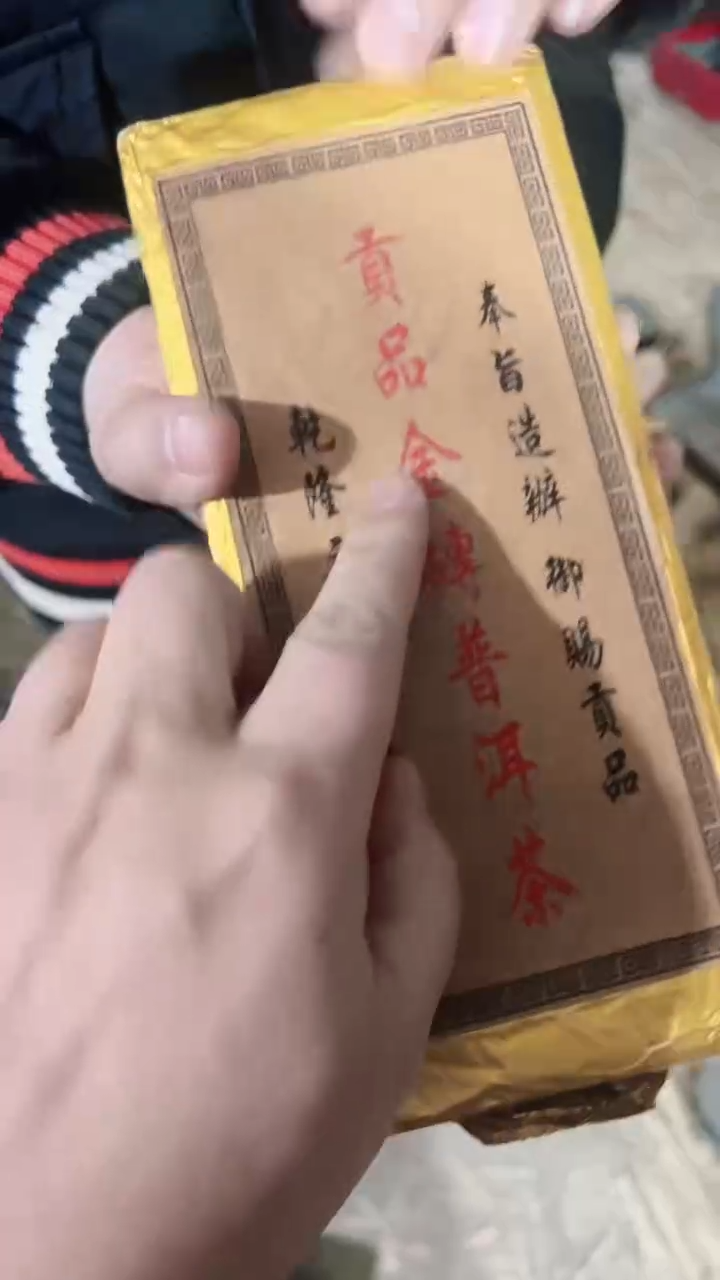 奉旨造辦 御賜貢品
貢品金磚普洱茶
乾隆